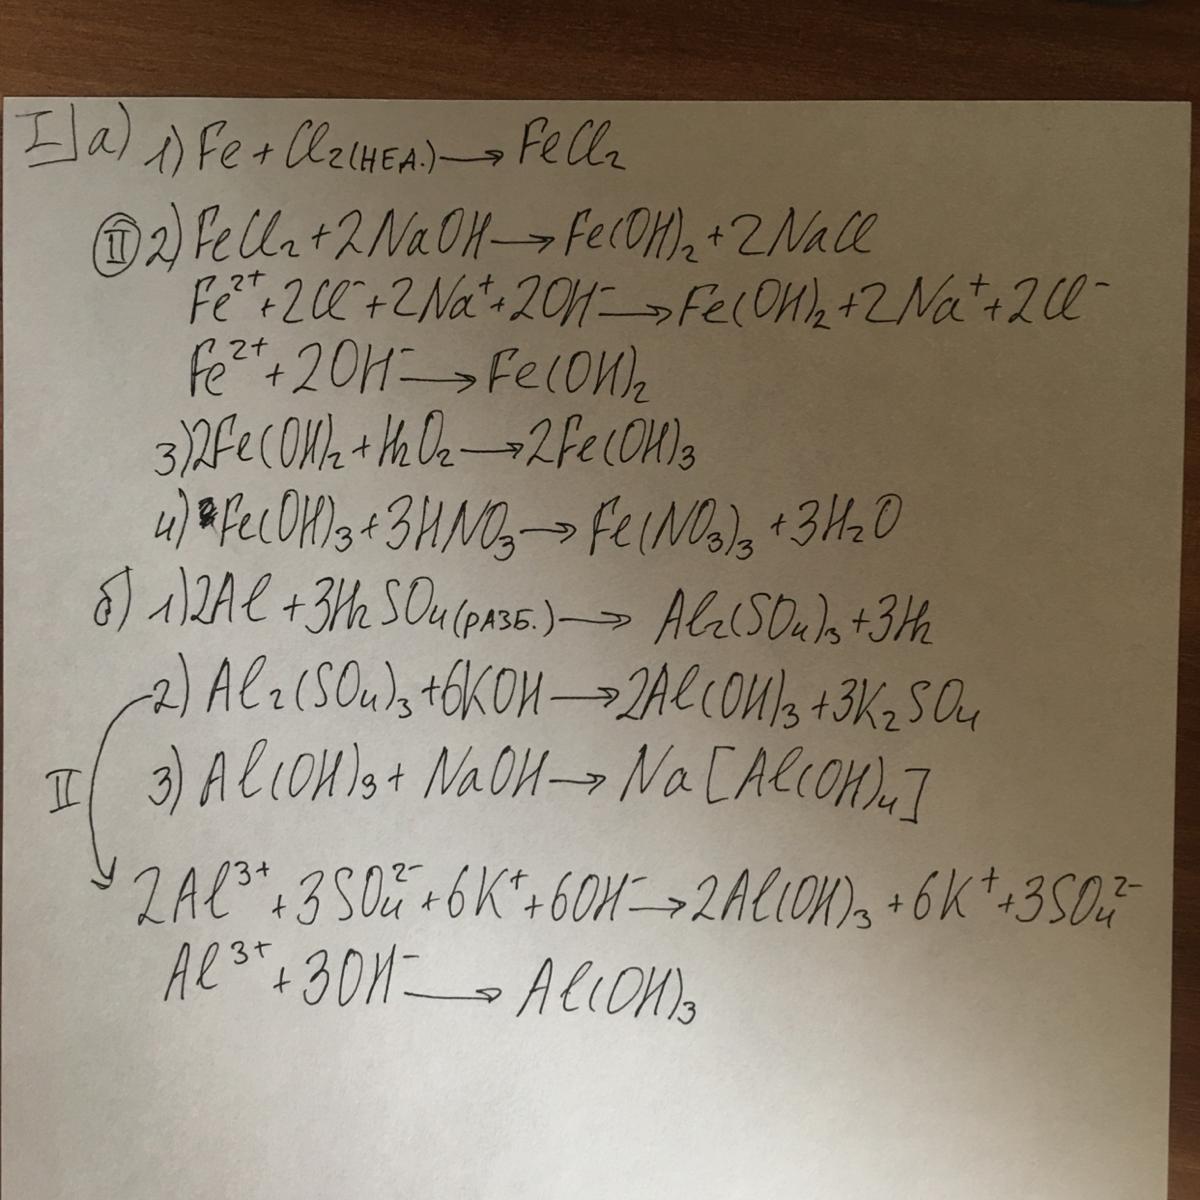 I] а) 1) Fe + Cl₂(НЕД.) → FeCl₂
II 2) FeCl₂ + 2NaOH → Fe(OH)₂ + 2NaCl
Fe²⁺ + 2Cl⁻ + 2Na⁺ + 2OH⁻ → Fe(OH)₂ + 2Na⁺ + 2Cl⁻
Fe²⁺ + 2OH⁻ → Fe(OH)₂
3) 2Fe(OH)₂ + H₂O₂ → 2Fe(OH)₃
4) Fe(OH)₃ + 3HNO₃ → Fe(NO₃)₃ + 3H₂O
б) 1) 2Al + 3H₂SO₄(РАЗБ.) → Al₂(SO₄)₃ + 3H₂
2) Al₂(SO₄)₃ + 6KOH → 2Al(OH)₃ + 3K₂SO₄
II 3) Al(OH)₃ + NaOH → Na[Al(OH)₄]
2Al³⁺ + 3SO₄²⁻ + 6K⁺ + 6OH⁻ → 2Al(OH)₃ + 6K⁺ + 3SO₄²⁻
Al³⁺ + 3OH⁻ → Al(OH)₃